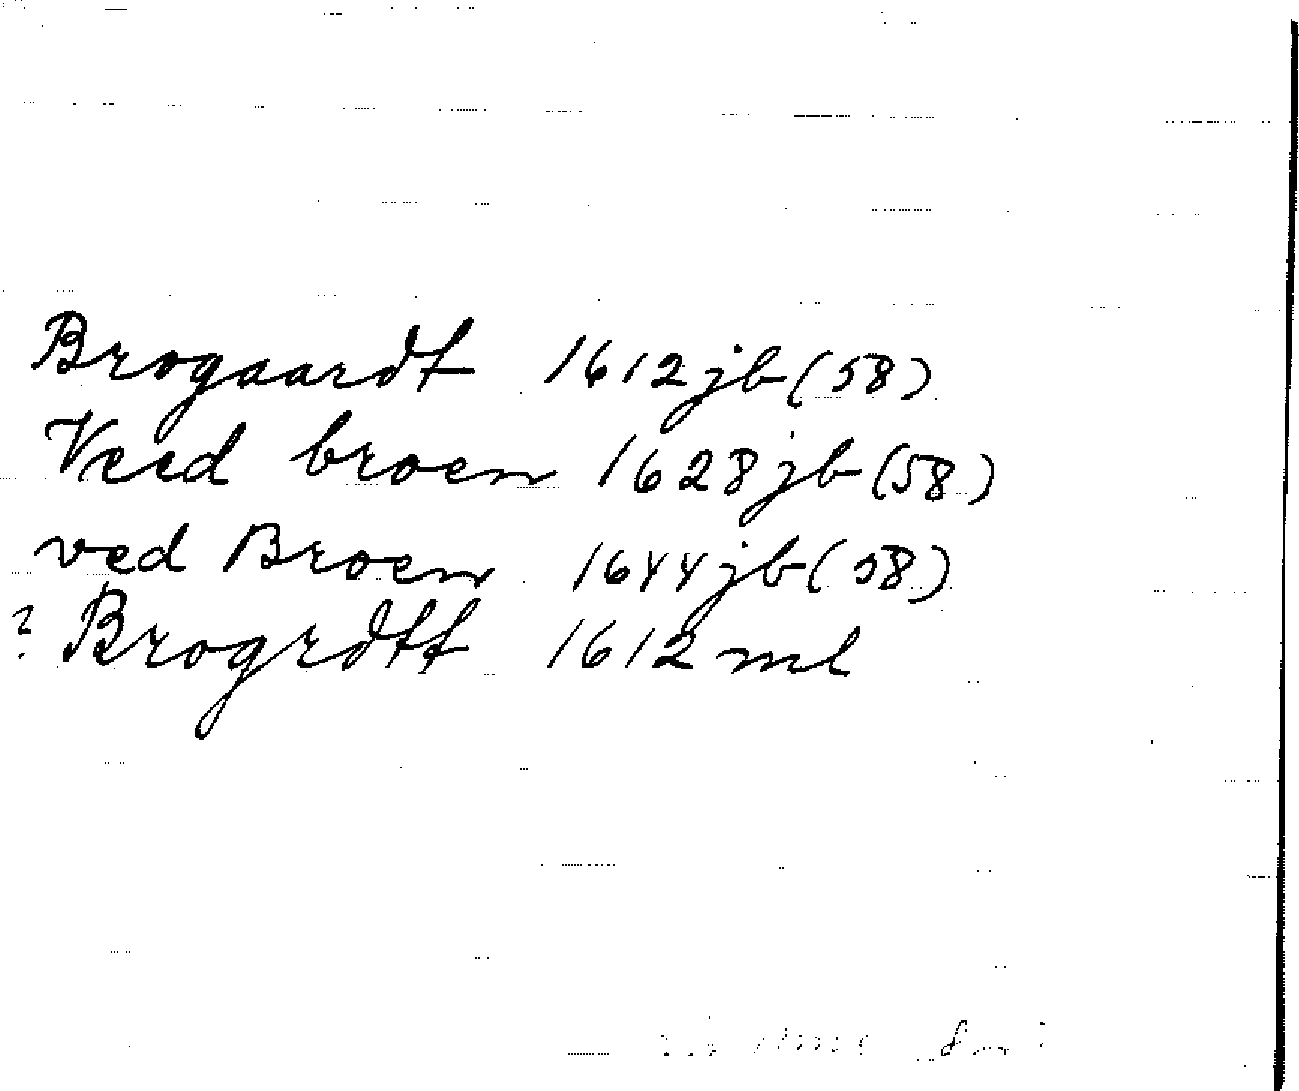 Brogaardt 1612 jb (58)
Veed broen 1628 jb (58)
ved Broen 1644 jb (58)
? Brogrdtt 1612 ml